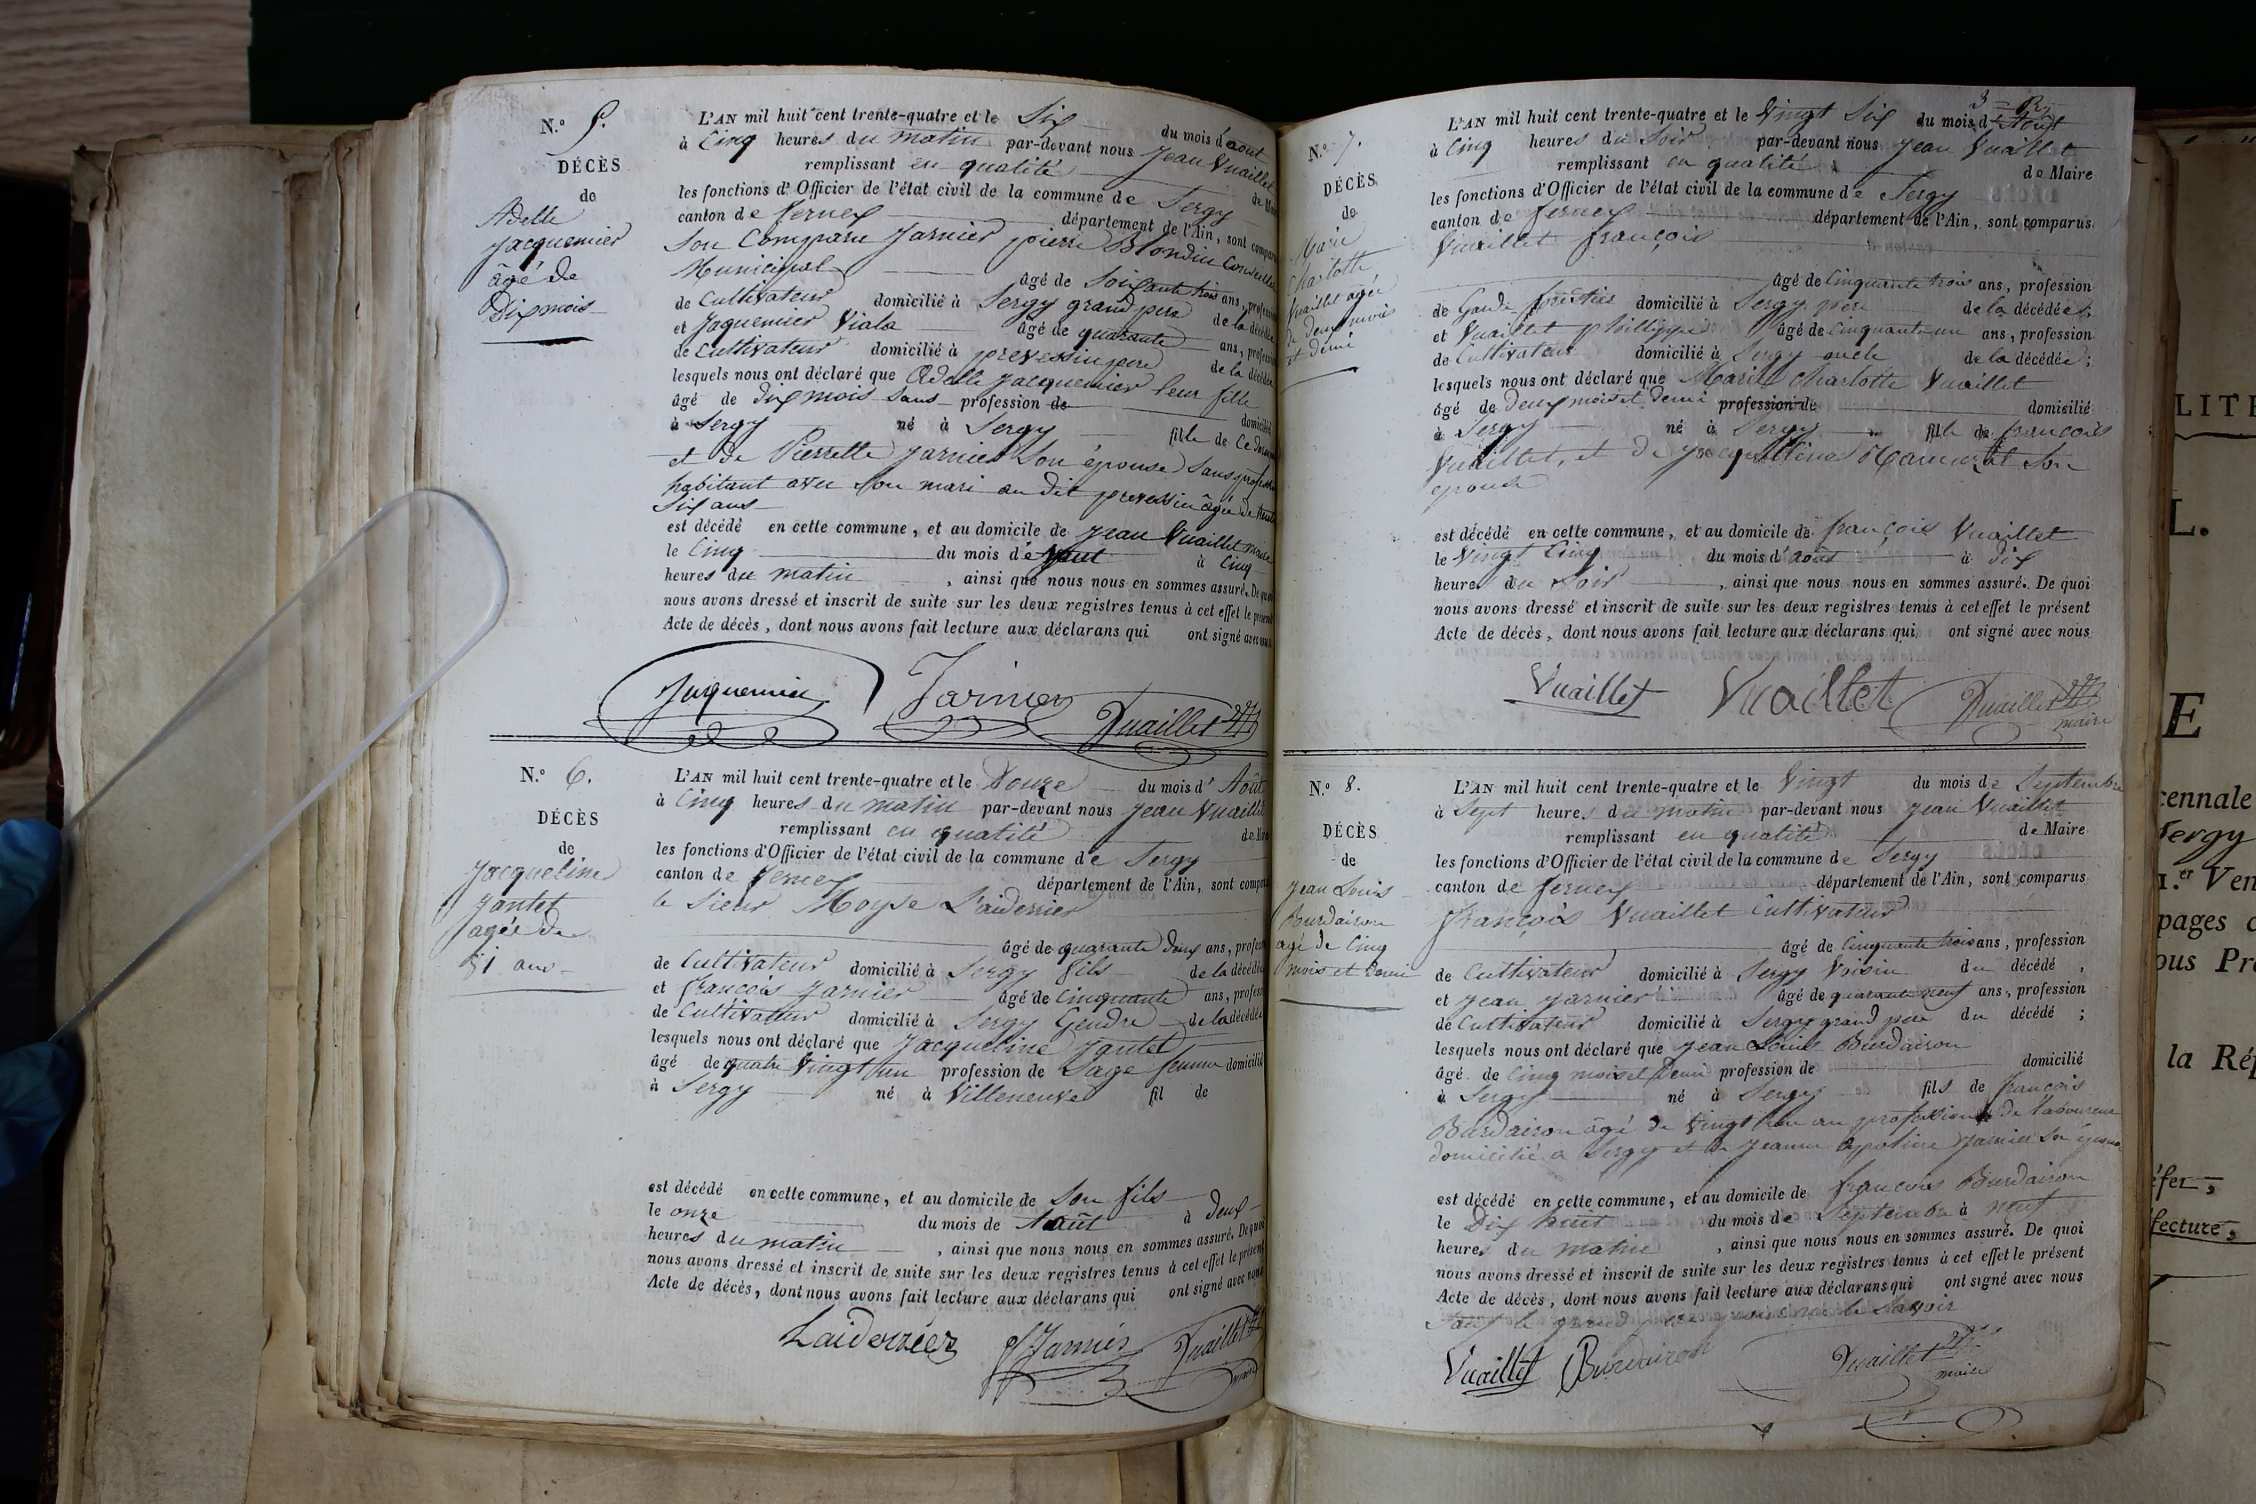 N.o 5.
DÉCÈS
de
Adelle
Jacquemier
âgé de
Dix mois
L'AN mil huit cent trente-quatre et le Six du mois d'aout
à Cinq heures du matin par-devant nous Jean Vuaillet
remplissant en qualité de Maire
les fonctions d'Officier de l'état civil de la commune de Sergy
canton de ferney département de l'Ain, sont comparus
Son Comparu Jarnier pierre Blondin Conseiller
Municipal âgé de Soixante trois ans, profession
de Cultivateur domicilié à Sergy grand pere de la décédée
et Jaquemier Viala âgé de quarante ans, profession
de Cultivateur domicilié à prevessin pere de la décédée
lesquels nous ont déclaré que Adelle Jacquemier leur fille
âgé de dix mois sans profession de domicilié
à Sergy né à Sergy fille de Ce dernier
et de Pierrette Jarnier Son épouse Sans profession
habitant avec Son mari au dit prevessin âgée de trente
Six ans
est décédé en cette commune, et au domicile de Jean Vuaillet maire
le Cinq du mois d'Aout à Cinq
heures du matin, ainsi que nous nous en sommes assuré. De quoi
nous avons dressé et inscrit de suite sur les deux registres tenus à cet effet le présent
Acte de décès, dont nous avons fait lecture aux déclarans qui ont signé avec nous
Jaquemier Jarnier Vuaillet
N.o 6.
DÉCÈS
de
Jacqueline
Jantet
agée de
81 ans
L'AN mil huit cent trente-quatre et le Douze du mois d'Août
à Cinq heures du matin par-devant nous Jean Vuaillet
remplissant en qualité de Maire
les fonctions d'Officier de l'état civil de la commune de Sergy
canton de ferney département de l'Ain, sont comparus
le Sieur Moyse Laiderrier
âgé de quarante deux ans, profession
de Cultivateur domicilié à Sergy fils de la décédée
et françois Jarnier âgé de Cinquante ans, profession
de Cultivateur domicilié à Sergy Gendre de la décédée
lesquels nous ont déclaré que Jacqueline Jantet
âgé de quatre Vingt un profession de Sage femme domicilié
à Sergy né à Villeneuve fil de
est décédé en cette commune, et au domicile de Son fils
le onze du mois de Août à deux
heures du matin, ainsi que nous nous en sommes assuré. De quoi
nous avons dressé et inscrit de suite sur les deux registres tenus à cet effet le présent
Acte de décès, dont nous avons fait lecture aux déclarans qui ont signé avec nous
Laiderrier Jarnier Vuaillet maire
N.o 7.
DÉCÈS
de
Marie
Charlotte
Vuaillet agée
de deux mois
et demi
L'AN mil huit cent trente-quatre et le Vingt Six du mois d'Août
à Cinq heures du Soir par-devant nous Jean Vuaillet
remplissant en qualité de Maire
les fonctions d'Officier de l'état civil de la commune de Sergy
canton de ferney département de l'Ain, sont comparus
Vuaillet françois
âgé de Cinquante trois ans, profession
de Garde forestier domicilié à Sergy père de la décédée
et Vuaillet phillippe âgé de Cinquante un ans, profession
de Cultivateur domicilié à Sergy oncle de la décédée;
lesquels nous ont déclaré que Marie Charlotte Vuaillet
âgé de Deux mois et demi profession de domicilié
à Sergy né à Sergy fille de françois
Vuaillet, et de Jacqueline Son
epouse
est décédé en cette commune, et au domicile de françois Vuaillet
le Vingt Cinq du mois d'août à dix
heures du Soir, ainsi que nous nous en sommes assuré. De quoi
nous avons dressé et inscrit de suite sur les deux registres tenus à cet effet le présent
Acte de décès, dont nous avons fait lecture aux déclarans qui ont signé avec nous
Vuaillet Vuaillet Vuaillet maire
N.o 8.
DÉCÈS
de
Jean Louis
Burdairon
agé de Cinq
mois et Demi
L'AN mil huit cent trente-quatre et le Vingt du mois de Septembre
à Sept heures du matin par-devant nous Jean Vuaillet
remplissant en qualité de Maire
les fonctions d'Officier de l'état civil de la commune de Sergy
canton de ferney département de l'Ain, sont comparus
françois Vuaillet Cultivateur
âgé de Cinquante trois ans, profession
de Cultivateur domicilié à Sergy Voisin du décédé,
et Jean Jarnier âgé de quarante neuf ans, profession
de Cultivateur domicilié à Sergy grand pere du décédé;
lesquels nous ont déclaré que Jean Louis Burdairon
âgé de Cinq mois et Demi profession de domicilié
à Sergy né à Sergy fils de françois
Burdairon âgé de Vingt un profession de laboureur
domicilié à Sergy et de Jeanne Apoline Jarnier Son épouse
est décédé en cette commune, et au domicile de françois Burdairon
le Dix huit du mois de Septembre à neuf
heures du matin, ainsi que nous nous en sommes assuré. De quoi
nous avons dressé et inscrit de suite sur les deux registres tenus à cet effet le présent
Acte de décès, dont nous avons fait lecture aux déclarans qui ont signé avec nous
Sauf le grand pere pour ne le Savoir
Vuaillet Burdairon Vuaillet maire
LITE
L.
E
cennale
Sergy
1.er Ven
pages
ous Pr
la Rép
éfer,
fecture,